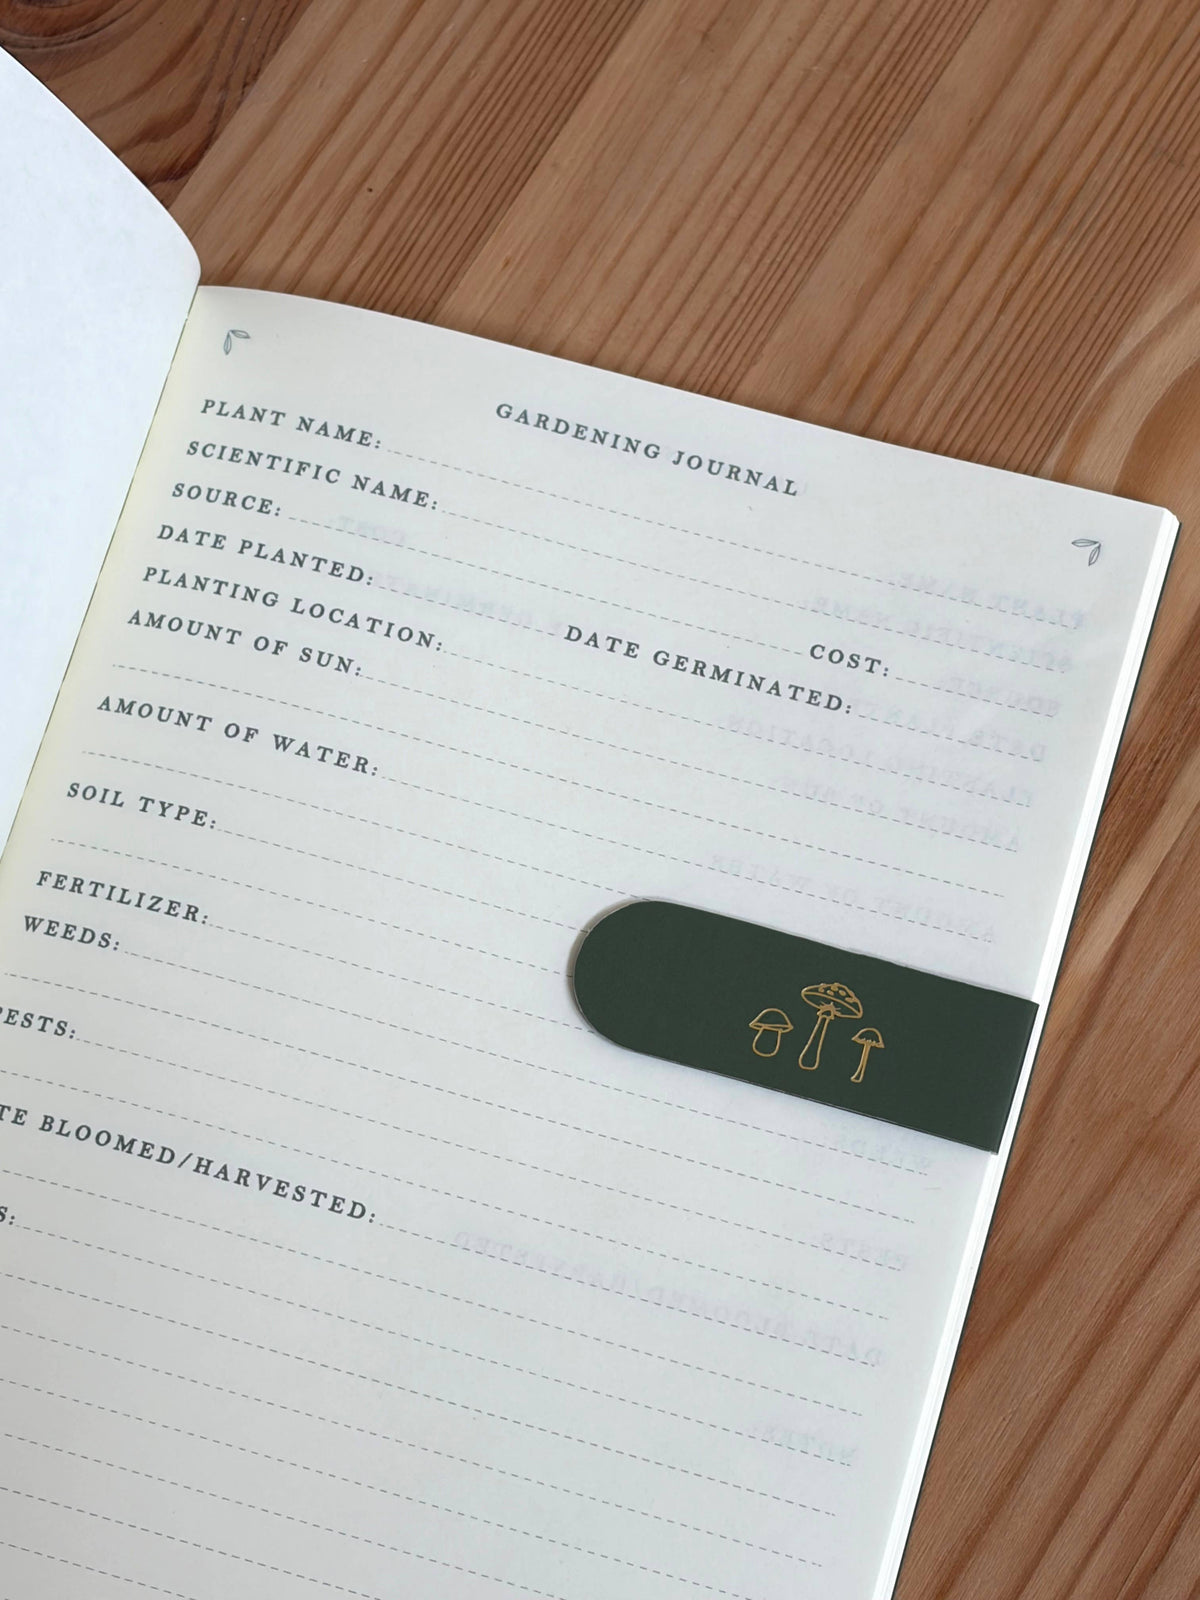 GARDENING JOURNAL
PLANT NAME:
SCIENTIFIC NAME:
SOURCE: COST:
DATE PLANTED: DATE GERMINATED:
PLANTING LOCATION:
AMOUNT OF SUN:
AMOUNT OF WATER:
SOIL TYPE:
FERTILIZER:
WEEDS:
PESTS:
TE BLOOMED/HARVESTED:
S: